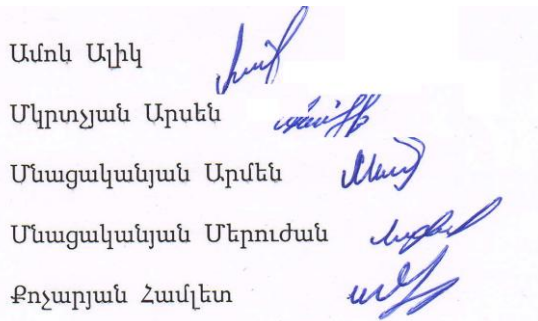 Ամոև Ալիկ
Մկրտչյան Արսեն
Մնացականյան Արմեն
Մնացականյան Մերուժան
Քոչարյան Համլետ